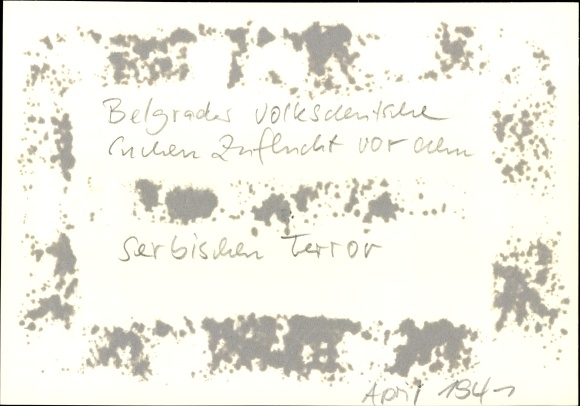 Belgrader Volksdeutsche
suchen Zuflucht vor dem
serbischen Terror
April 1941